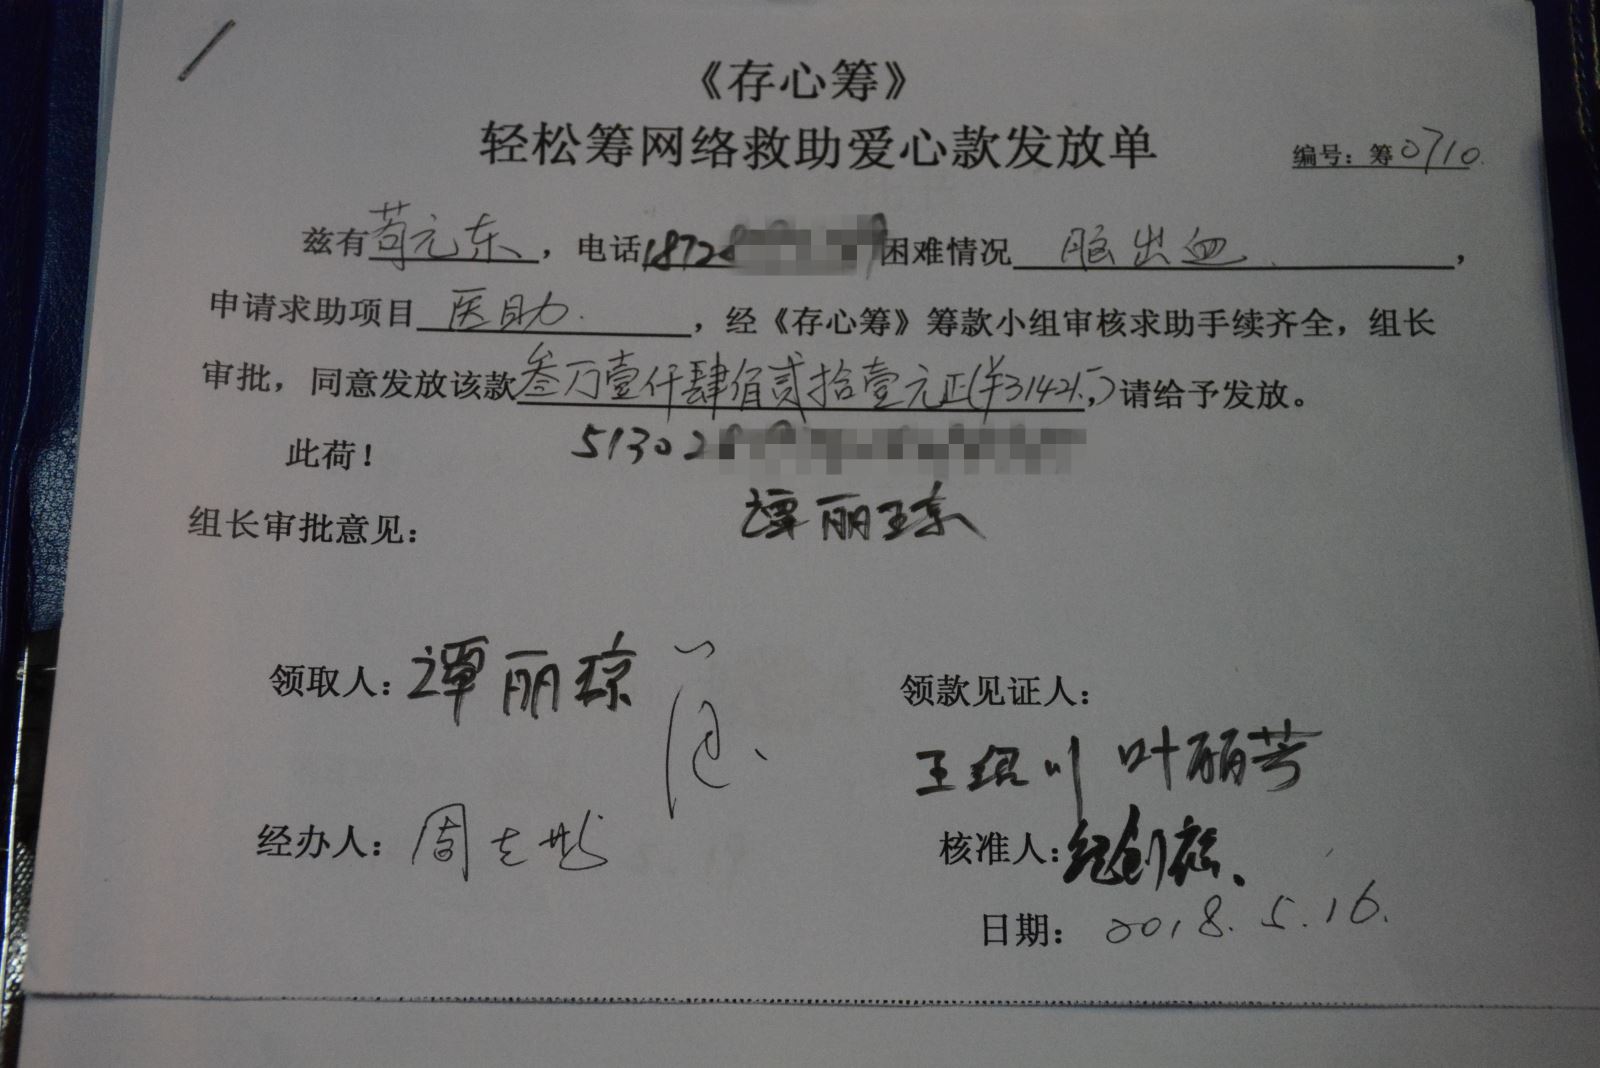 《存心筹》
轻松筹网络救助爱心款发放单
编号：筹0710.
兹有苟元东，电话18728 困难情况 脑出血.，
申请求助项目 医助.，经《存心筹》筹款小组审核求助手续齐全，组长
审批，同意发放该款叁万壹仟肆佰贰拾壹元正(¥31421.-)请给予发放。
此荷！ 51302
组长审批意见： 谭丽琼
领取人：谭丽琼
领款见证人：
王绍川 叶丽芳
经办人：周
核准人：
日期：2018.5.16.